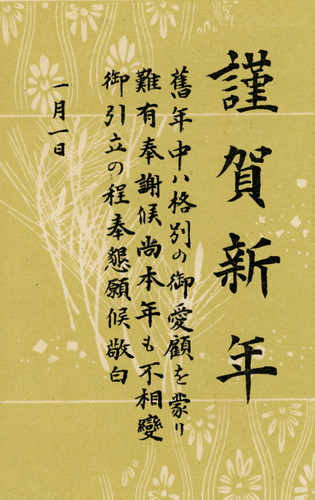 謹賀新年
舊年中ハ格別の御愛顧を蒙り
難有奉謝候尚本年も不相變
御引立の程奉懇願候敬白
一月一日